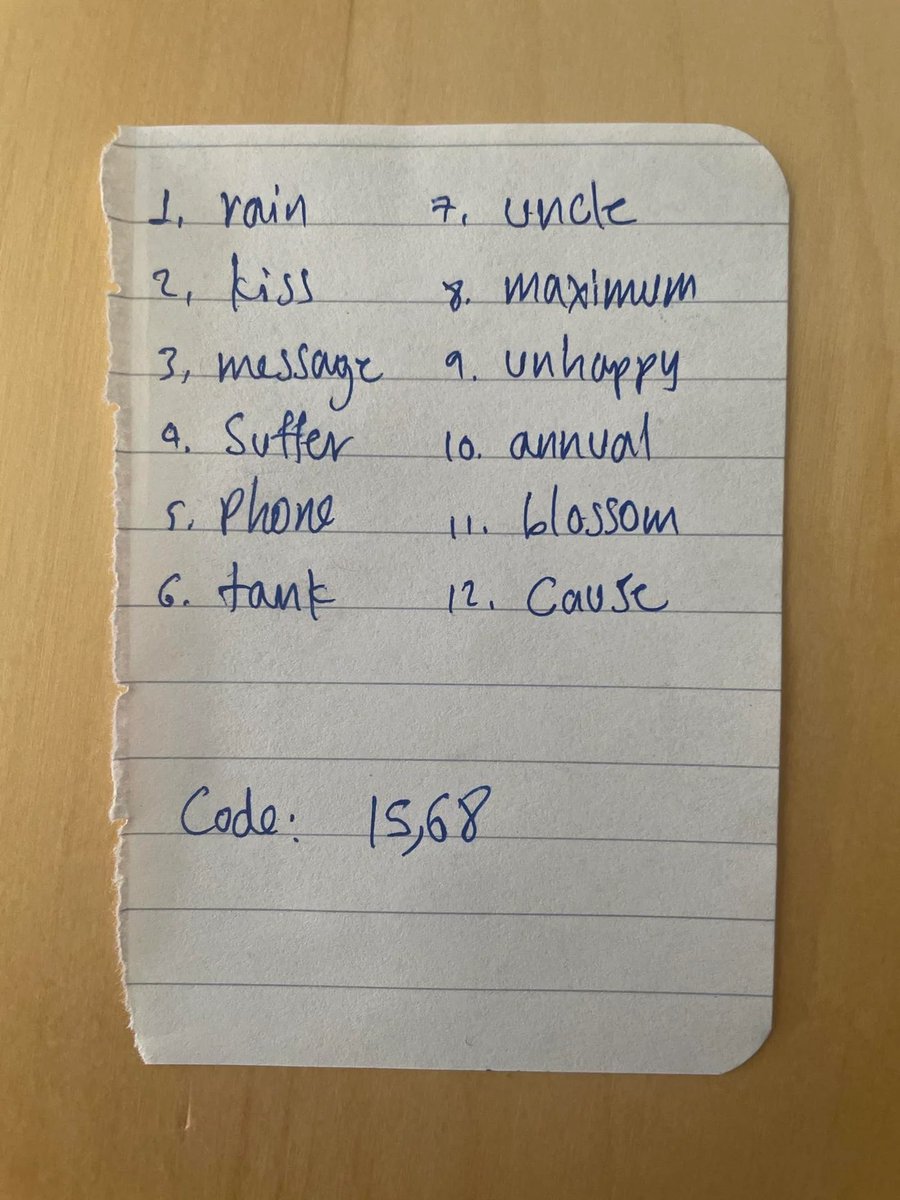 1, rain
2, kiss
3, message
4. Suffer
5. Phone
6. tank
7. uncle
8. maximum
9. unhappy
10. annual
11. blossom
12. Cause
Code: 15,68